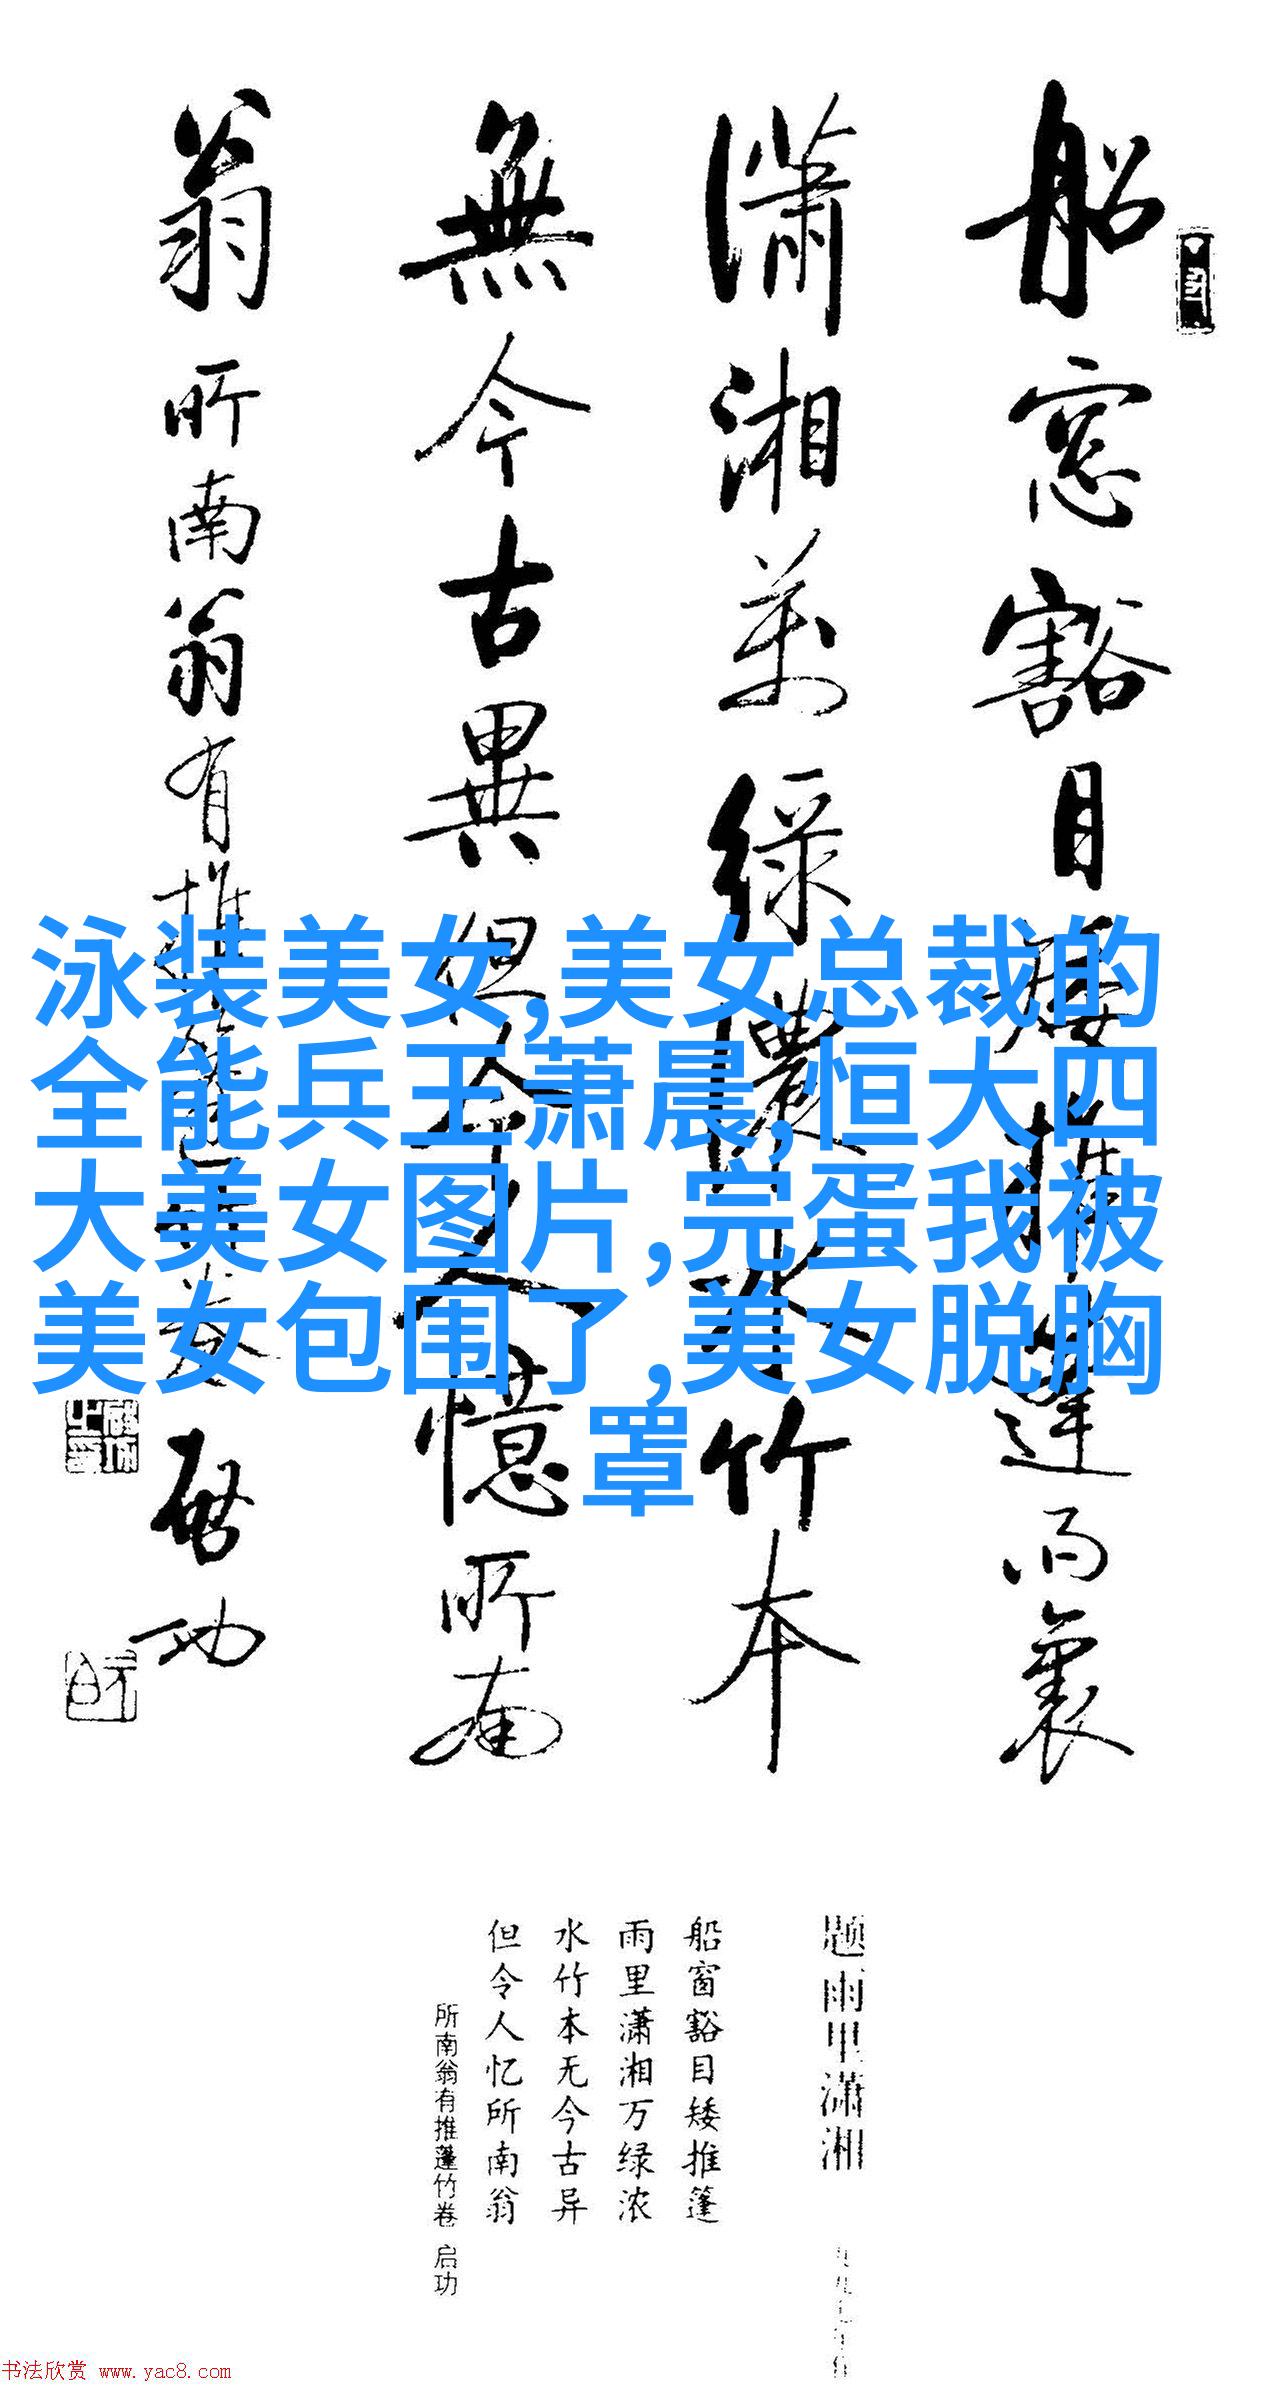 船窗豁目矮推篷雨裏
瀟湘萬綠濃水竹本
無今古異但令人憶所南
翁 所南翁有推篷竹卷 启功
泳装美女,美女总裁的
全能兵王萧晨,恒大四
大美女图片,完蛋我被
美女包围了,美女脱胸
罩
题雨里潇湘
船窗豁目矮推篷
雨里潇湘万绿浓
水竹本无今古异
但令人忆所南翁
所南翁有推篷竹卷 启功
书法欣赏 www.yac8.com